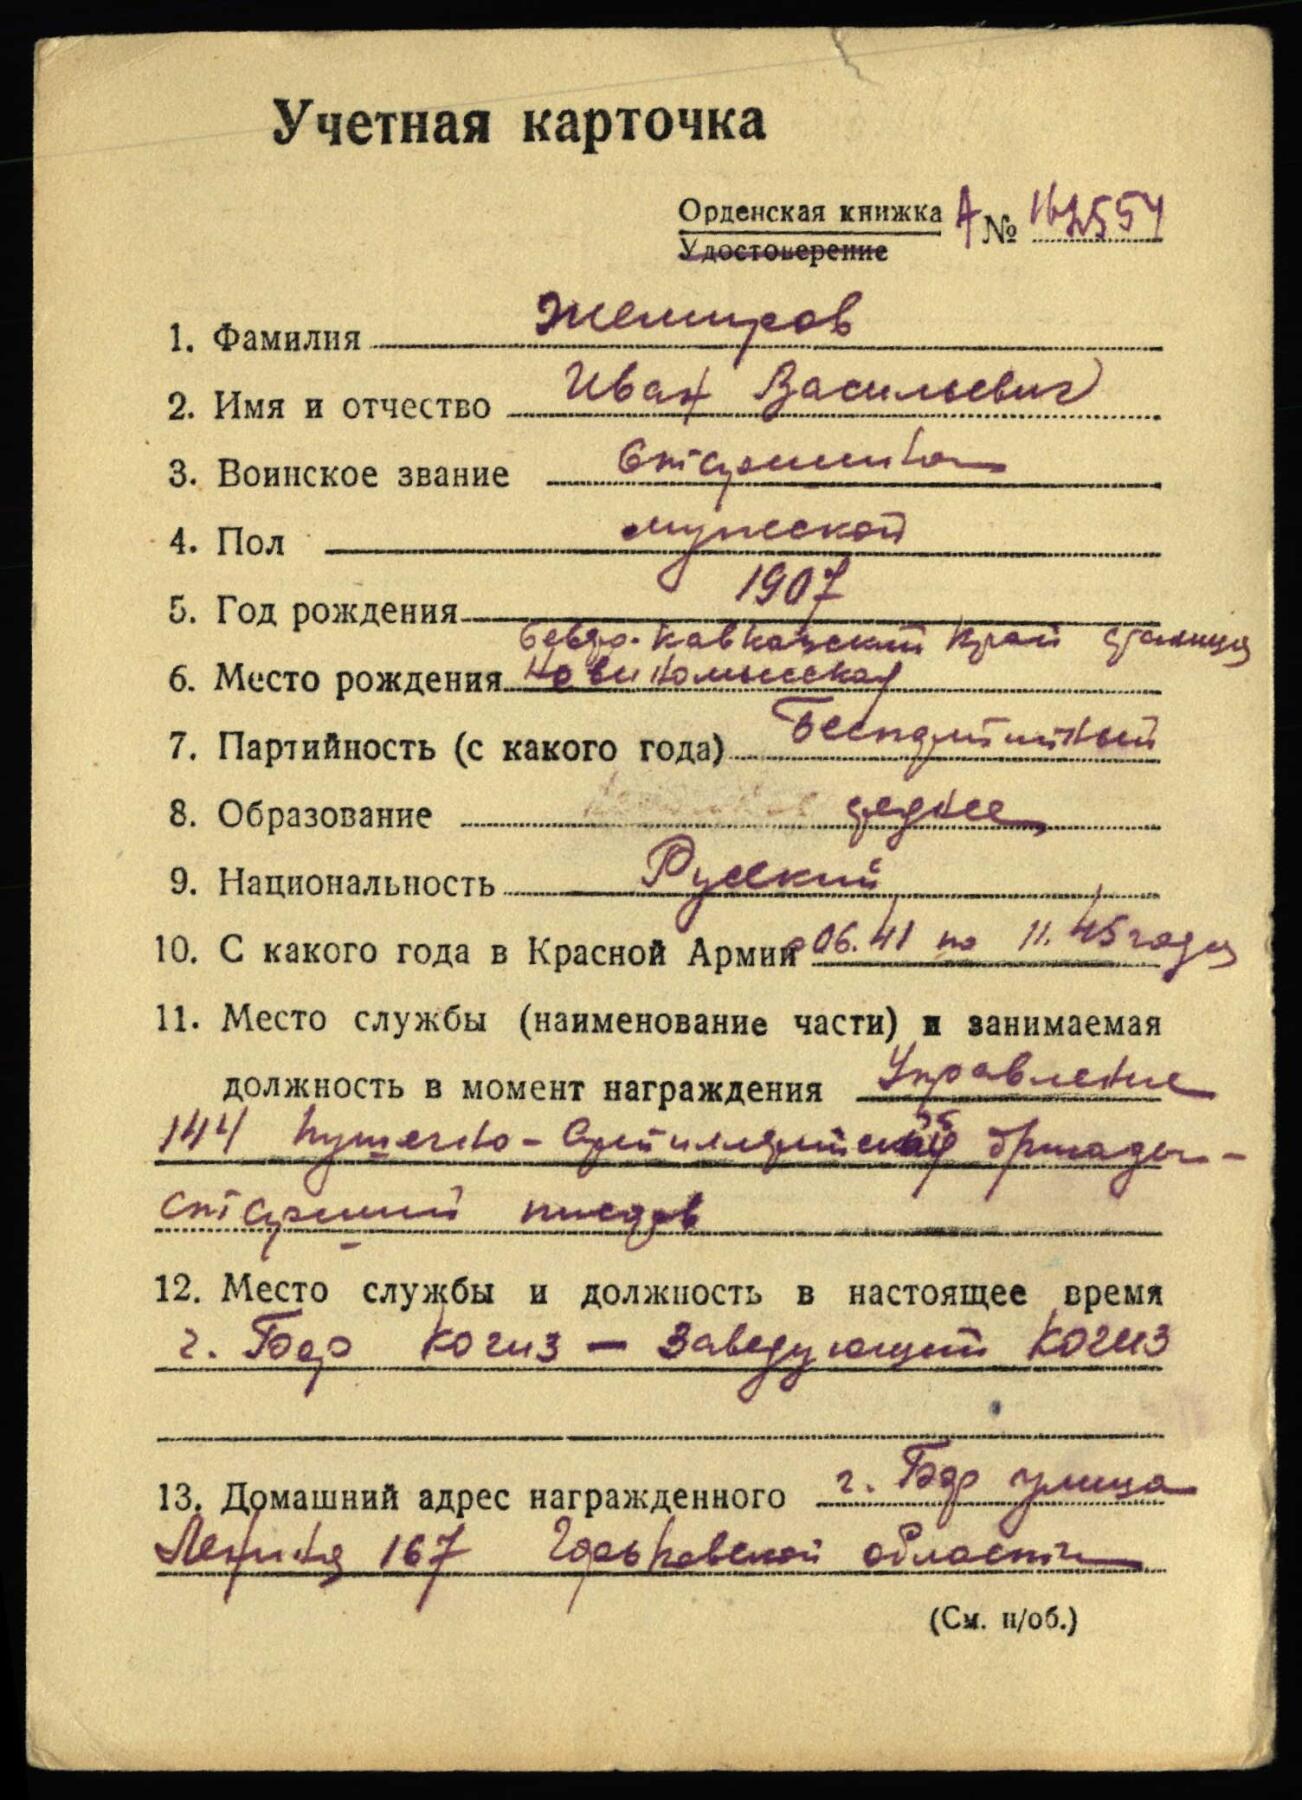 Учетная карточка
Орденская книжка А № 162554
Удостоверение
1. Фамилия Жемиров
2. Имя и отчество Иван Васильевич
3. Воинское звание Старшина
4. Пол мужской
5. Год рождения 1907
Севро-Кавказский Край станица
6. Место рождения
7. Партийность (с какого года) Беспартийный
8. Образование среднее
9. Национальность Русский
10. С какого года в Красной Армии с 06.41 по 11.45 года
11. Место службы (наименование части) и занимаемая
должность в момент награждения Управление
144 Пушечно-Артиллерийской бригады-
старший писарь
12. Место службы и должность в настоящее время
г. Бор Когиз — Заведующий Когиз
13. Домашний адрес награжденного г. Бор улица
Ленина 167 Горьковской области
(См. н/об.)